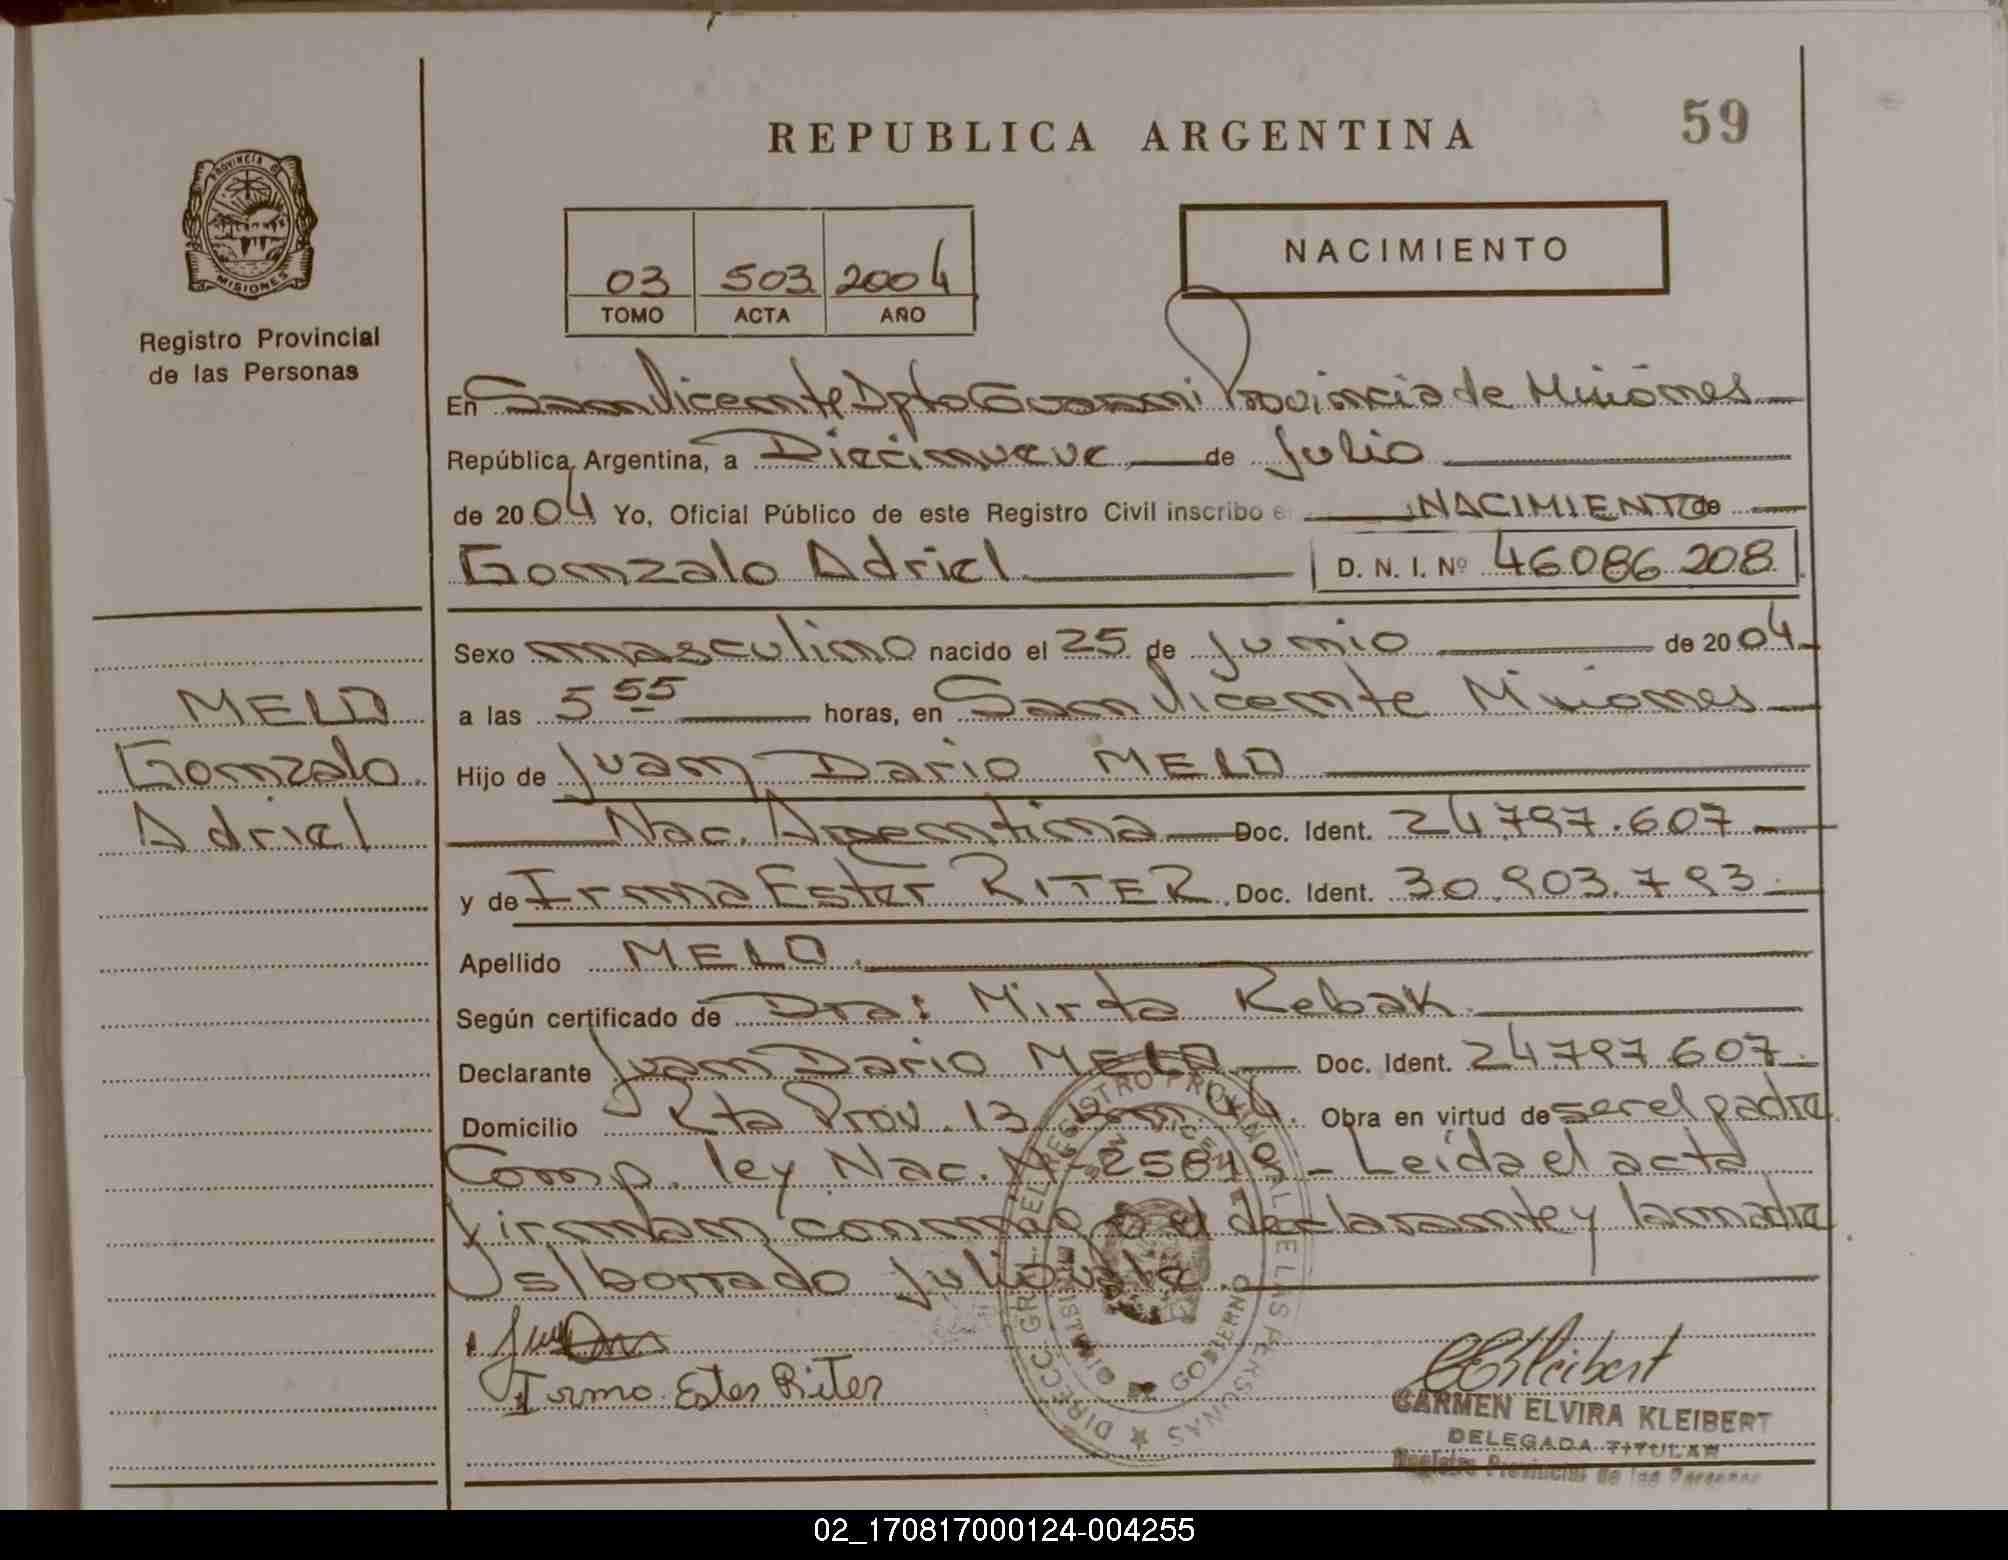 59
REPUBLICA ARGENTINA
PROVINCIA DE
MISIONES
Registro Provincial
de las Personas
03 503 2004
TOMO ACTA AÑO
NACIMIENTO
En San Vicente Dpto Guarani Provincia de Misiones
República Argentina, a Diecinueve de Julio
de 2004 Yo, Oficial Público de este Registro Civil inscribo e NACIMIENTO de
Gonzalo Adriel D. N. I. Nº 46086 208
Sexo masculino nacido el 25 de Junio de 2004
a las 5 55 horas, en San Vicente Misiones
MELO
Gonzalo
Adriel
Hijo de Juan Dario MELO
Nac. Argentina Doc. Ident. 24.797.607
y de Irma Ester RITER Doc. Ident. 30.903.793
Apellido MELO
Según certificado de Dra: Mirta Rebak
Declarante Juan Dario MELO Doc. Ident. 24797.607
Domicilio Rta Prov. 13 Obra en virtud de ser el padre
Comp. ley Nac. Nº - Leida el acta
firman conmigo el declarante y la madre
s/borrado Julio vale.
Irma Ester Riter
DIRECC. GRAL. DEL REGISTRO PROVINCIAL DE LAS PERSONAS
GOBIERNO
CEKleibert
CARMEN ELVIRA KLEIBERT
DELEGADA TITULAR
Registro Provincial de las Personas
02_170817000124-004255